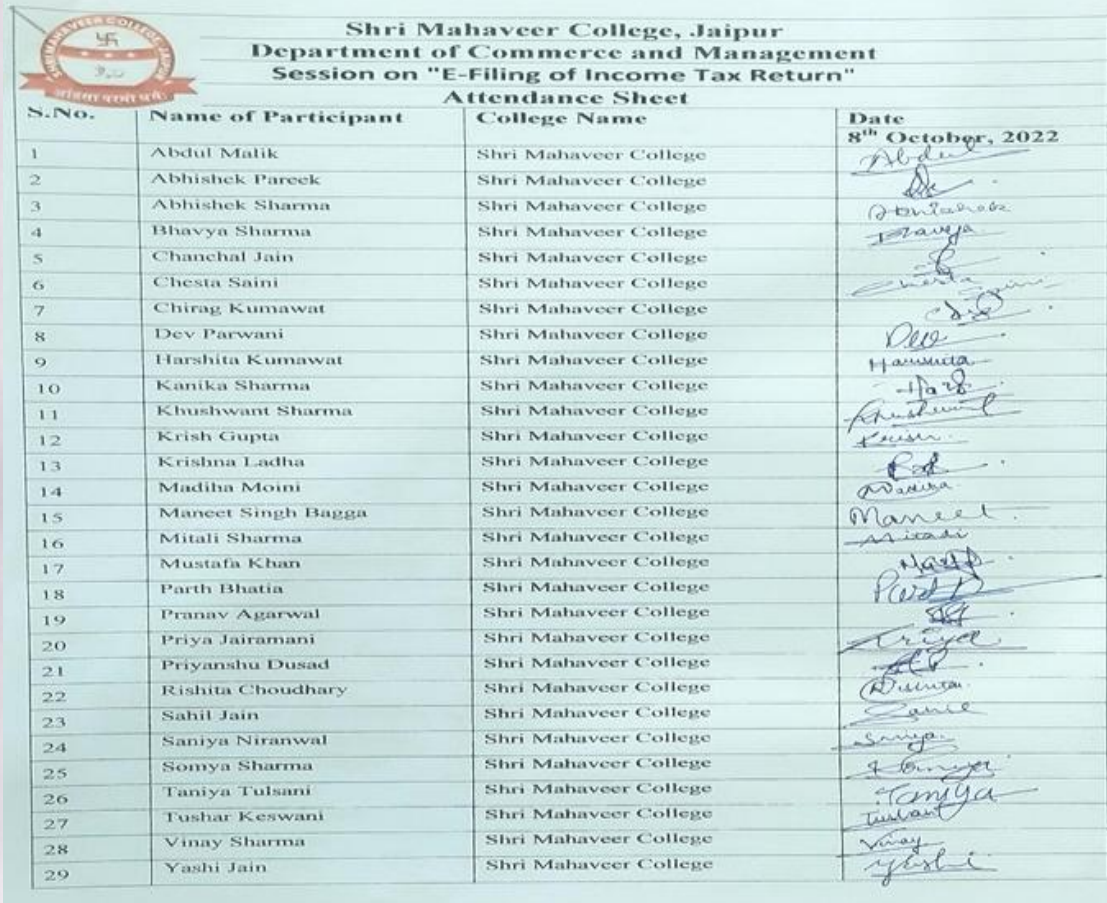 SHRI MAHAVEER COLLEGE, JAIPUR
अहिंसा परमो धर्म:
Shri Mahaveer College, Jaipur
Department of Commerce and Management
Session on "E-Filing of Income Tax Return"
Attendance Sheet
S.No. Name of Participant College Name Date
8th October, 2022
1 Abdul Malik Shri Mahaveer College Abdul
2 Abhishek Pareek Shri Mahaveer College
3 Abhishek Sharma Shri Mahaveer College Abhishek
4 Bhavya Sharma Shri Mahaveer College
5 Chanchal Jain Shri Mahaveer College
6 Chesta Saini Shri Mahaveer College Chesta Saini
7 Chirag Kumawat Shri Mahaveer College
8 Dev Parwani Shri Mahaveer College Dev
9 Harshita Kumawat Shri Mahaveer College Harshita
10 Kanika Sharma Shri Mahaveer College
11 Khushwant Sharma Shri Mahaveer College Khushwant
12 Krish Gupta Shri Mahaveer College Krish
13 Krishna Ladha Shri Mahaveer College
14 Madiha Moini Shri Mahaveer College Madiha
15 Maneet Singh Bagga Shri Mahaveer College Maneet
16 Mitali Sharma Shri Mahaveer College Mitali
17 Mustafa Khan Shri Mahaveer College
18 Parth Bhatia Shri Mahaveer College Parth
19 Pranav Agarwal Shri Mahaveer College
20 Priya Jairamani Shri Mahaveer College Priya
21 Priyanshu Dusad Shri Mahaveer College
22 Rishita Choudhary Shri Mahaveer College
23 Sahil Jain Shri Mahaveer College
24 Saniya Niranwal Shri Mahaveer College
25 Somya Sharma Shri Mahaveer College Somya
26 Taniya Tulsani Shri Mahaveer College Taniya
27 Tushar Keswani Shri Mahaveer College
28 Vinay Sharma Shri Mahaveer College Vinay
29 Yashi Jain Shri Mahaveer College Yashi